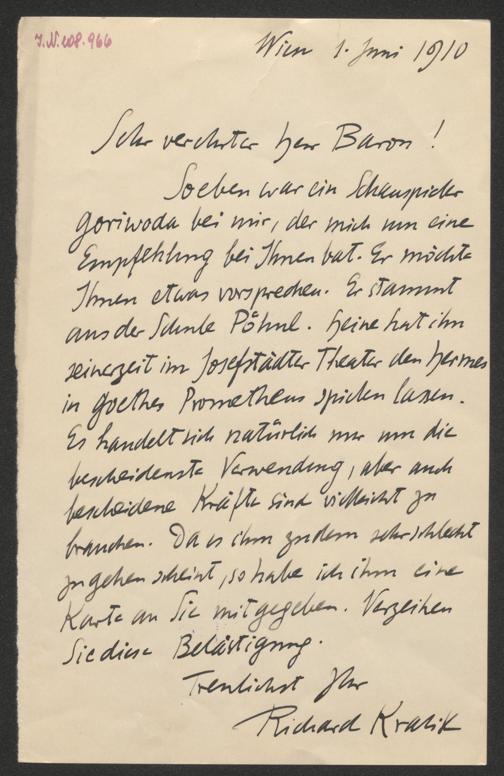 J.N. 208.966
Wien 1. Juni 1910
Sehr verehrter Herr Baron!
Soeben war ein Schauspieler
Goriwoda bei mir, der mich um eine
Empfehlung bei Ihnen bat. Er möchte
Ihnen etwas vorsprechen. Er stammt
aus der Schule Pöhnl. Heine hat ihn
seinerzeit im Josefstädter Theater den Hermes
in Goethes Prometheus spielen lassen.
Es handelt sich natürlich nur um die
bescheidenste Verwendung, aber auch
bescheidene Kräfte sind vielleicht zu
brauchen. Da es ihm zudem sehr schlecht
zu gehen scheint, so habe ich ihm eine
Karte an Sie mitgegeben. Verzeihen
Sie diese Belästigung.
Treulichst Ihr
Richard Kralik